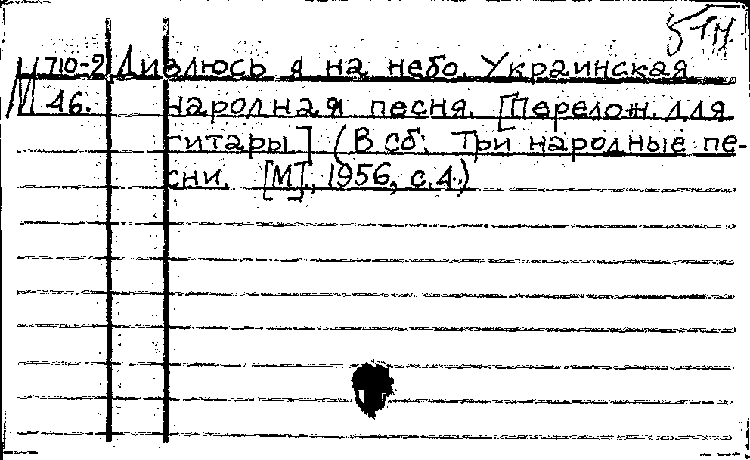 М 710-2 Дивлюсь я на небо. Украинская
46. народная песня. [Перелож. для
гитары] (В сб: Три народные пе-
сни. [М], 1956, с.4.)